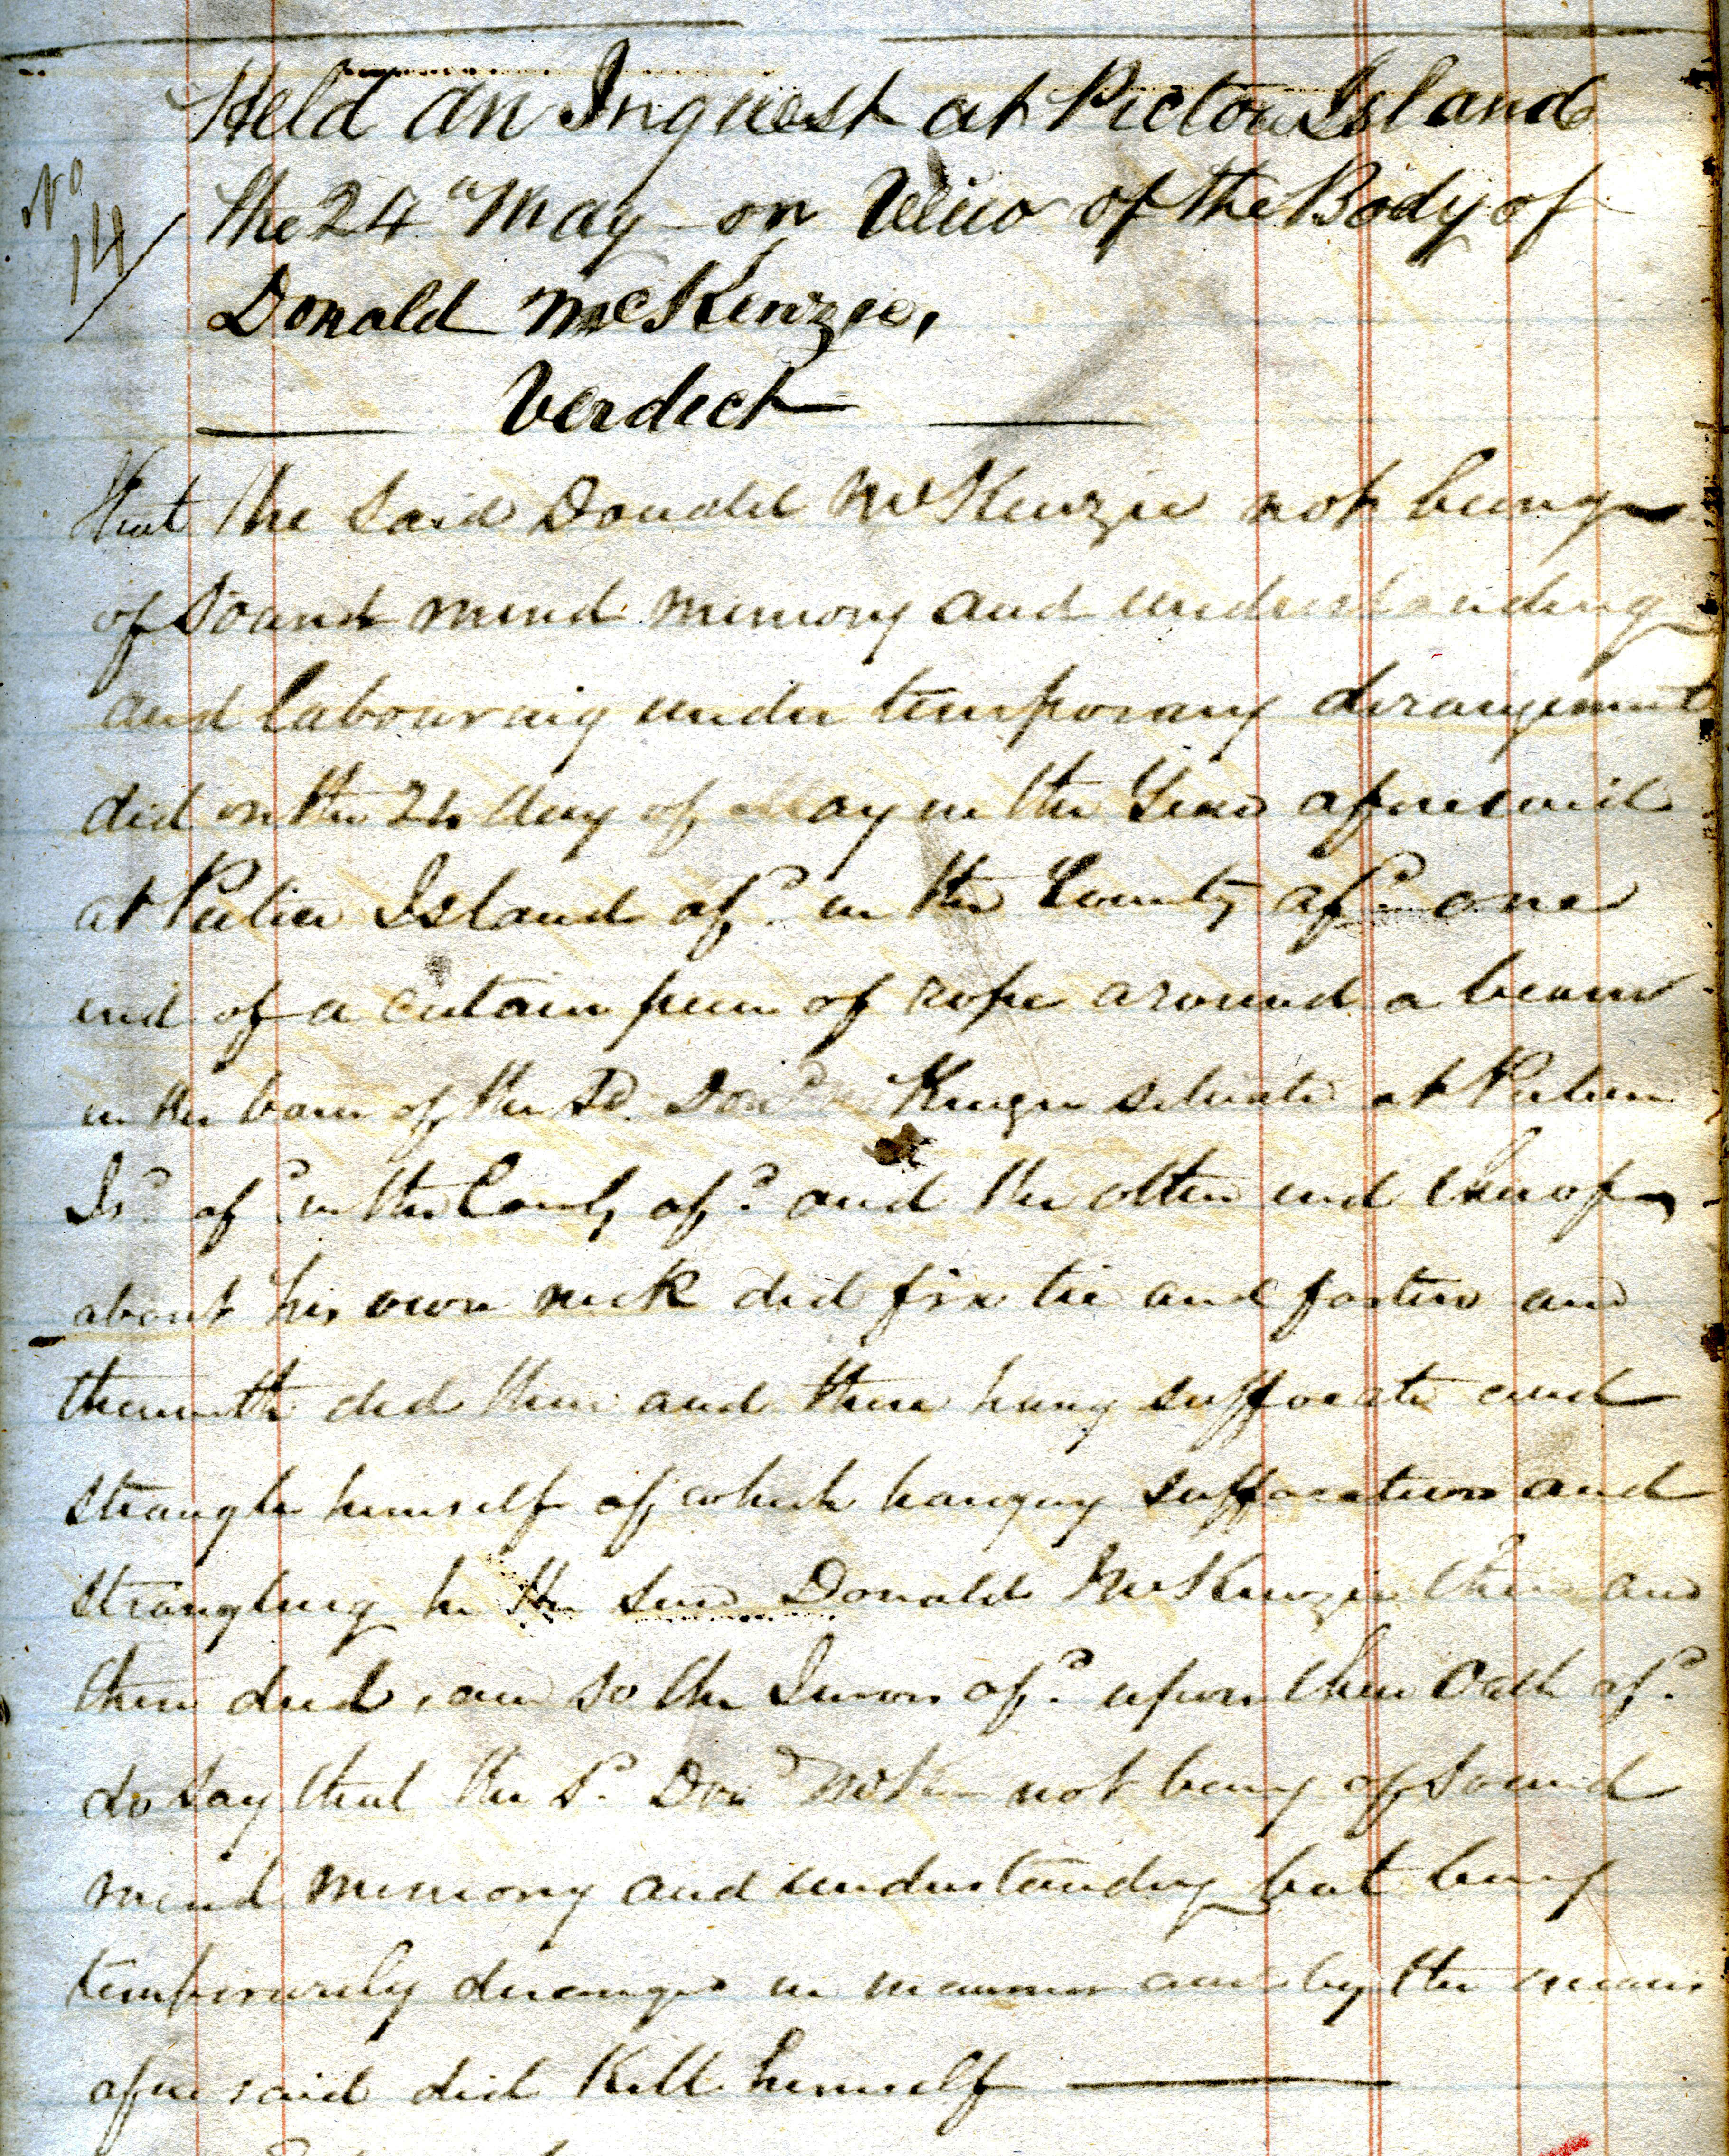 Held an Inquest at Pictou Island
No 14/
the 24" May on View of the Body of
Donald McKenzie,
Verdict
that the said Donald McKenzie not being
of sound mind memory and understanding
and labouring under temporary derangement
did on the 24 day of May in the Year aforesaid
at Pictou Island afd. in the County afd. one
end of a certain piece of rope around a beam
in the barn of the sd. Dond McKenzie situate at Pictou
Isd. afd. in the County afd. and the other end thereof
about his own neck did fix tie and fasten and
therewith did then and there hang suffocate and
strangle himself of which hanging suffocation and
strangling he the said Donald McKenzie then and
there died, and so the Jurors afd. upon their Oath afd.
do say that the sd. Dond McK- not being of sound
mind memory and understanding but being
temporarily deranged in manner and by the means
aforesaid did Kill himself